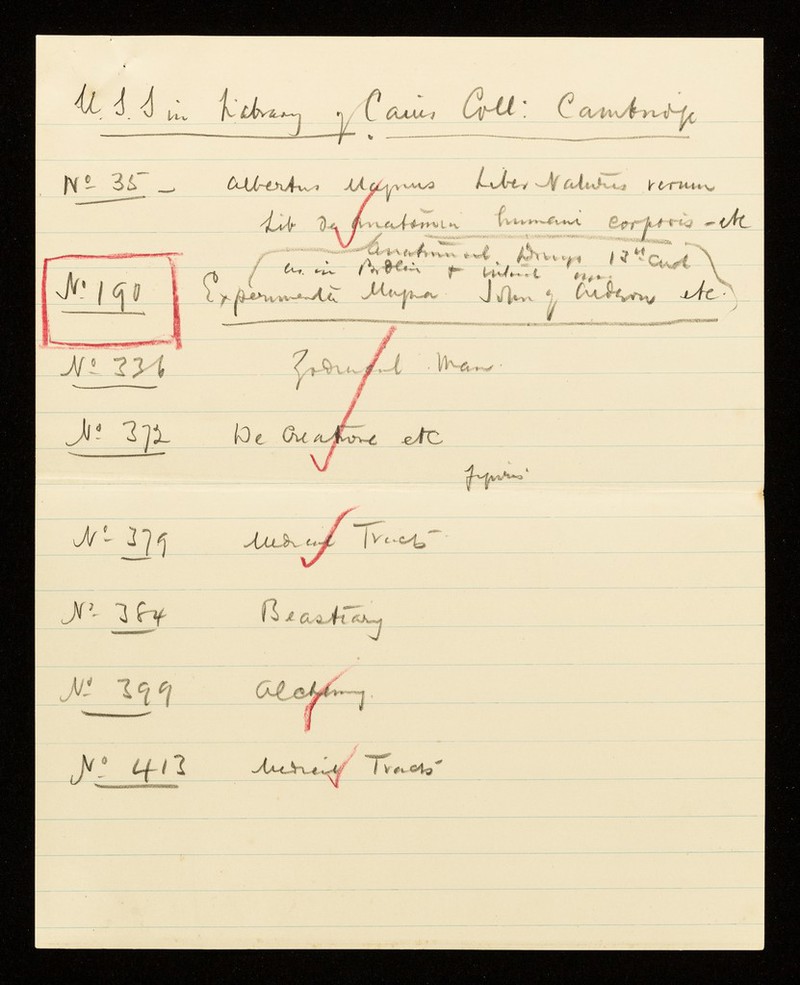 M.S.S in Library of Caius Coll: Cambridge
No 35 - Albertus Magnus Liber Naturis rerum
Lib de Anatomia humani corporis - etc
Anatomical Drwgs 13th Cent
as in Bodlin +
No 190 Experimenta Magra John of etc.
No 336 Zodiacal Man.
No 372 De Creatione etc
figures
No 379 Medical Tracts
No 384 Beastiary
No 399 Alchemy.
No 413 Medical Tracts